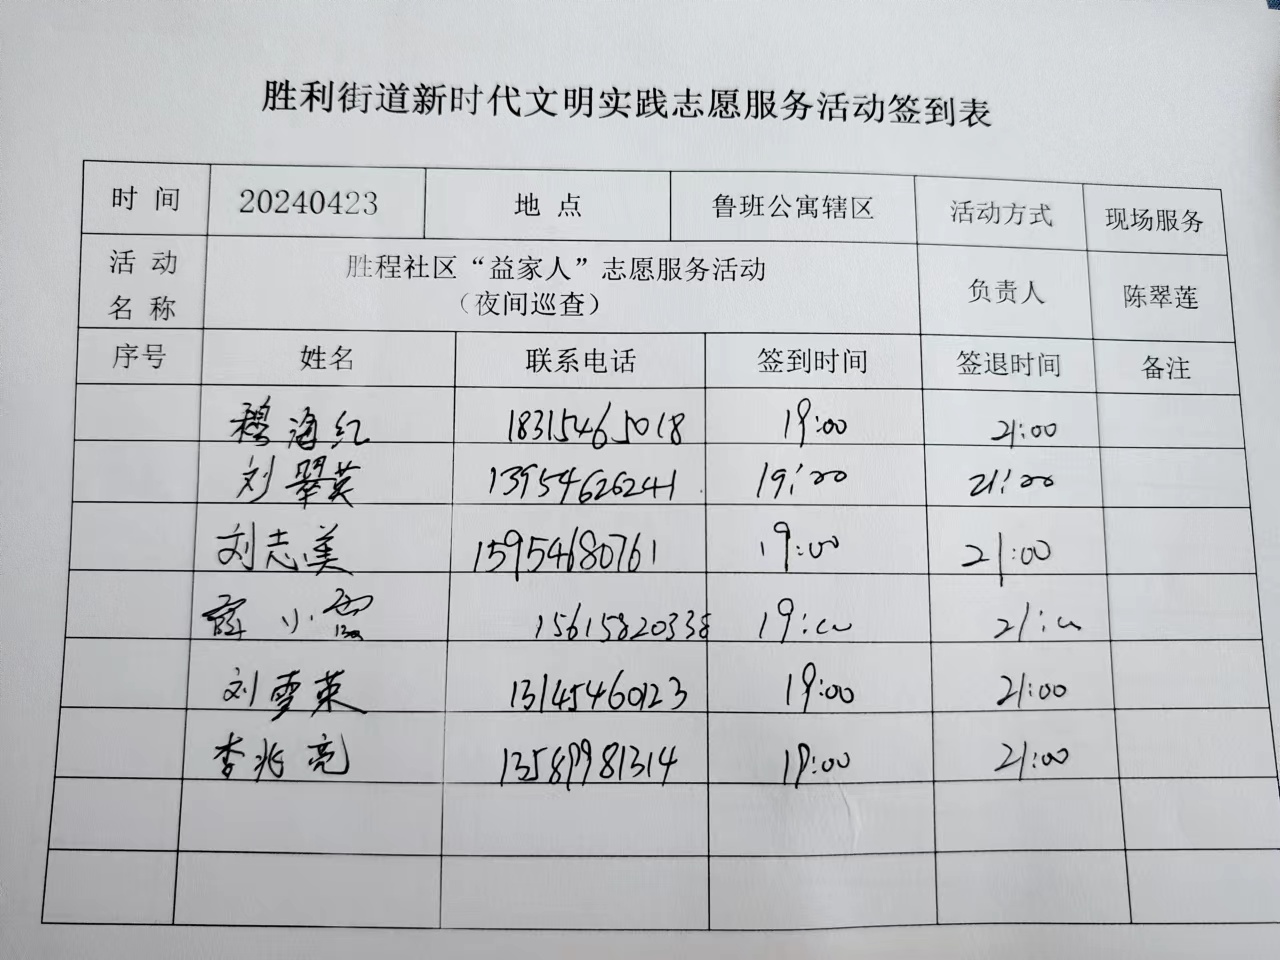 胜利街道新时代文明实践志愿服务活动签到表
时 间 20240423 地 点 鲁班公寓辖区 活动方式 现场服务
活 动 名 称 胜程社区“益家人”志愿服务活动 （夜间巡查） 负责人 陈翠莲
序号 姓名 联系电话 签到时间 签退时间 备注
穆海红 18315465018 19:00 21:00
刘翠英 13954626241 19:00 21:00
刘志美 15954680761 19:00 21:00
薛小霞 15615820338 19:00 21:00
刘雪莱 13145460123 19:00 21:00
李兆亮 13589981314 19:00 21:00